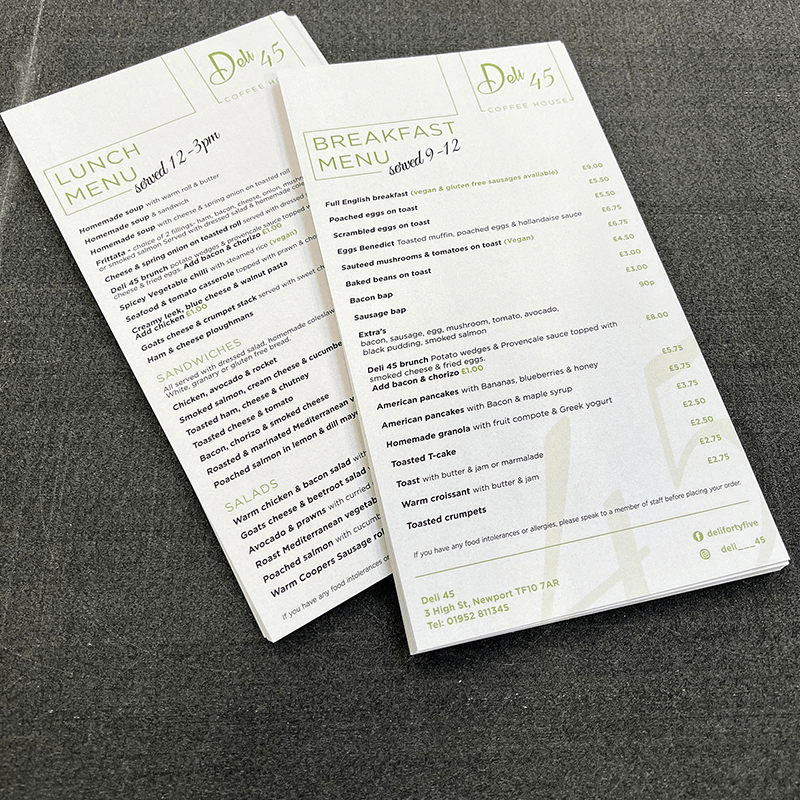 Deli 45
COFFEE HOUSE
LUNCH
MENU served 12-3pm
Homemade soup with warm roll & butter
Homemade soup & sandwich
Homemade soup with cheese & spring onion on toasted roll
Frittata - choice of 2 fillings: ham, bacon, cheese, onion,
or smoked salmon Served with dressed salad & homemade
Cheese & spring onion on toasted roll served with dressed
Deli 45 brunch potato wedges & provençale sauce topped
cheese & fried eggs. Add bacon & chorizo £1.00
Spicy Vegetable chilli with steamed rice (Vegan)
Seafood & tomato casserole topped with prawn &
Creamy leek, blue cheese & walnut pasta
Add chicken £1.00
Goats cheese & crumpet stack served with sweet
Ham & cheese ploughmans
SANDWICHES
All served with dressed salad, homemade coleslaw
White, granary or gluten free bread.
Chicken, avocado & rocket
Smoked salmon, cream cheese &
Toasted ham, cheese & chutney
Toasted cheese & tomato
Bacon, chorizo & smoked cheese
Roasted & marinated Mediterranean
Poached salmon in lemon & dill
SALADS
Warm chicken & bacon salad
Goats cheese & beetroot salad
Avocado & prawns with curried
Roast Mediterranean
Poached salmon with
Warm Coopers Sausage
If you have any food intolerances
Deli 45
COFFEE HOUSE
BREAKFAST
MENU served 9-12
Full English breakfast (vegan & gluten free sausages available) £9.00
Poached eggs on toast £5.50
Scrambled eggs on toast £5.50
Eggs Benedict Toasted muffin, poached eggs & hollandaise sauce £6.75
Sauteed mushrooms & tomatoes on toast (Vegan) £6.75
Baked beans on toast £4.50
Bacon bap £3.00
Sausage bap £3.00
Extra's 90p
bacon, sausage, egg, mushroom, tomato, avocado,
black pudding, smoked salmon
Deli 45 brunch Potato wedges & Provençale sauce topped with £8.00
smoked cheese & fried eggs.
Add bacon & chorizo £1.00
American pancakes with Bananas, blueberries & honey £5.75
American pancakes with Bacon & maple syrup £5.75
Homemade granola with fruit compote & Greek yogurt £3.75
Toasted T-cake £2.50
Toast with butter & jam or marmalade £2.50
Warm croissant with butter & jam £2.75
Toasted crumpets £2.75
If you have any food intolerances or allergies, please speak to a member of staff before placing your order.
delifortyfive
deli___45
Deli 45
3 High St, Newport TF10 7AR
Tel: 01952 811345
45